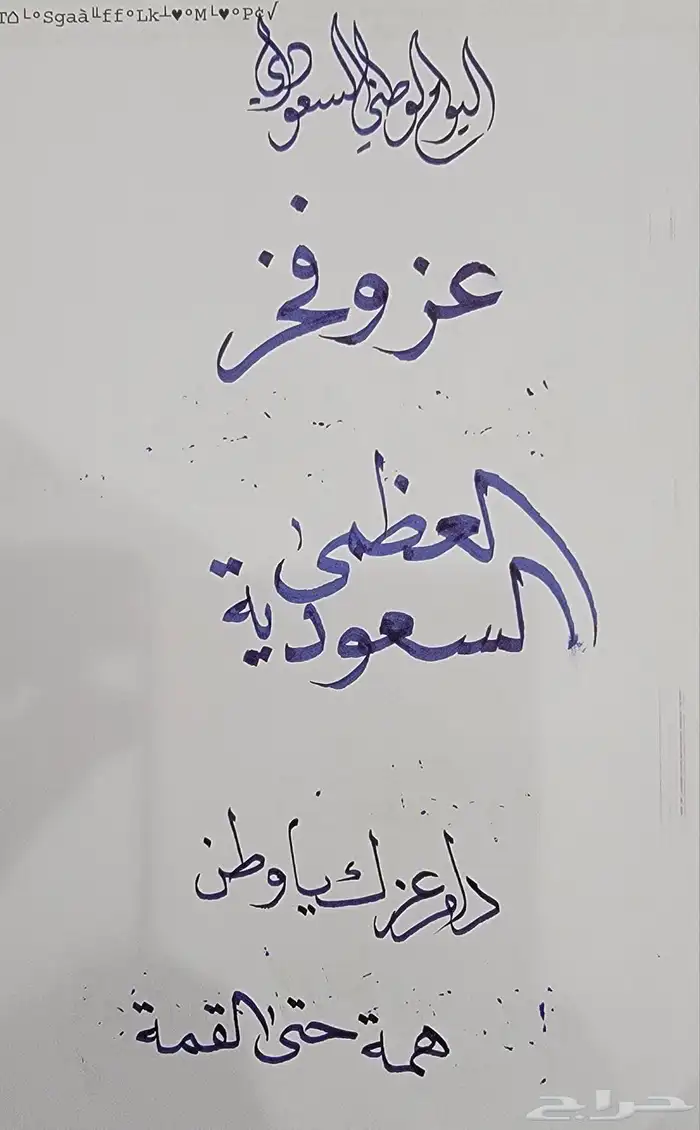 T⌂└°Sgaà╙ff°Lk┴♥°M└♥°P¢√
اليوم الوطني السعودي
عز وفخر
العظمى
السعودية
دام عزك يا وطن
همة حتى القمة
حراج